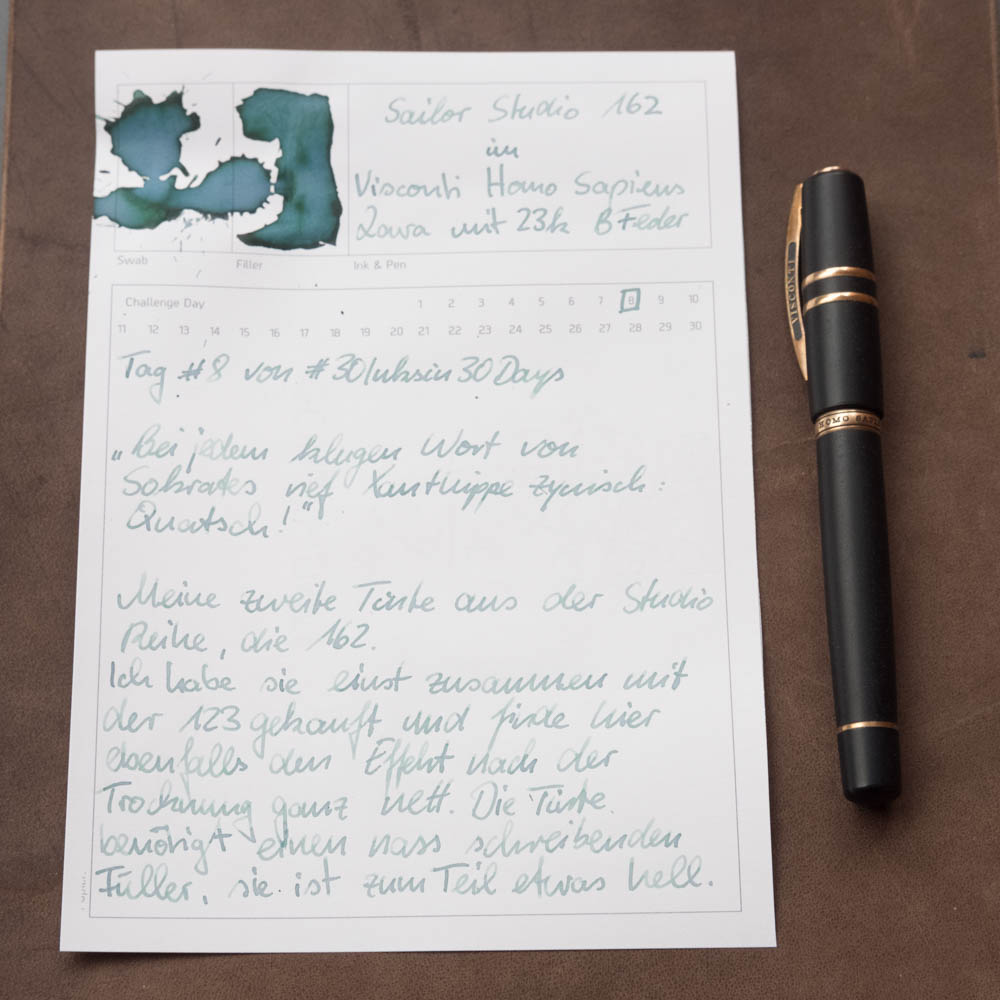 Sailor Studio 162
im
Visconti Homo Sapiens
Lava mit 23k B Feder
Swab
Filler
Ink & Pen
Challenge Day 1 2 3 4 5 6 7 8 9 10
11 12 13 14 15 16 17 18 19 20 21 22 23 24 25 26 27 28 29 30
Tag #8 von #30Inksin30Days
„Bei jedem klugen Wort von
Sokrates rief Xanthippe zynisch:
Quatsch!"
Meine zweite Tinte aus der Studio
Reihe, die 162.
Ich habe sie einst zusammen mit
der 123 gekauft und finde hier
ebenfalls den Effekt nach der
Trocknung ganz nett. Die Tinte
benötigt einen nass schreibenden
Füller, sie ist zum Teil etwas hell.
VISCONTI
HOMO SAPI